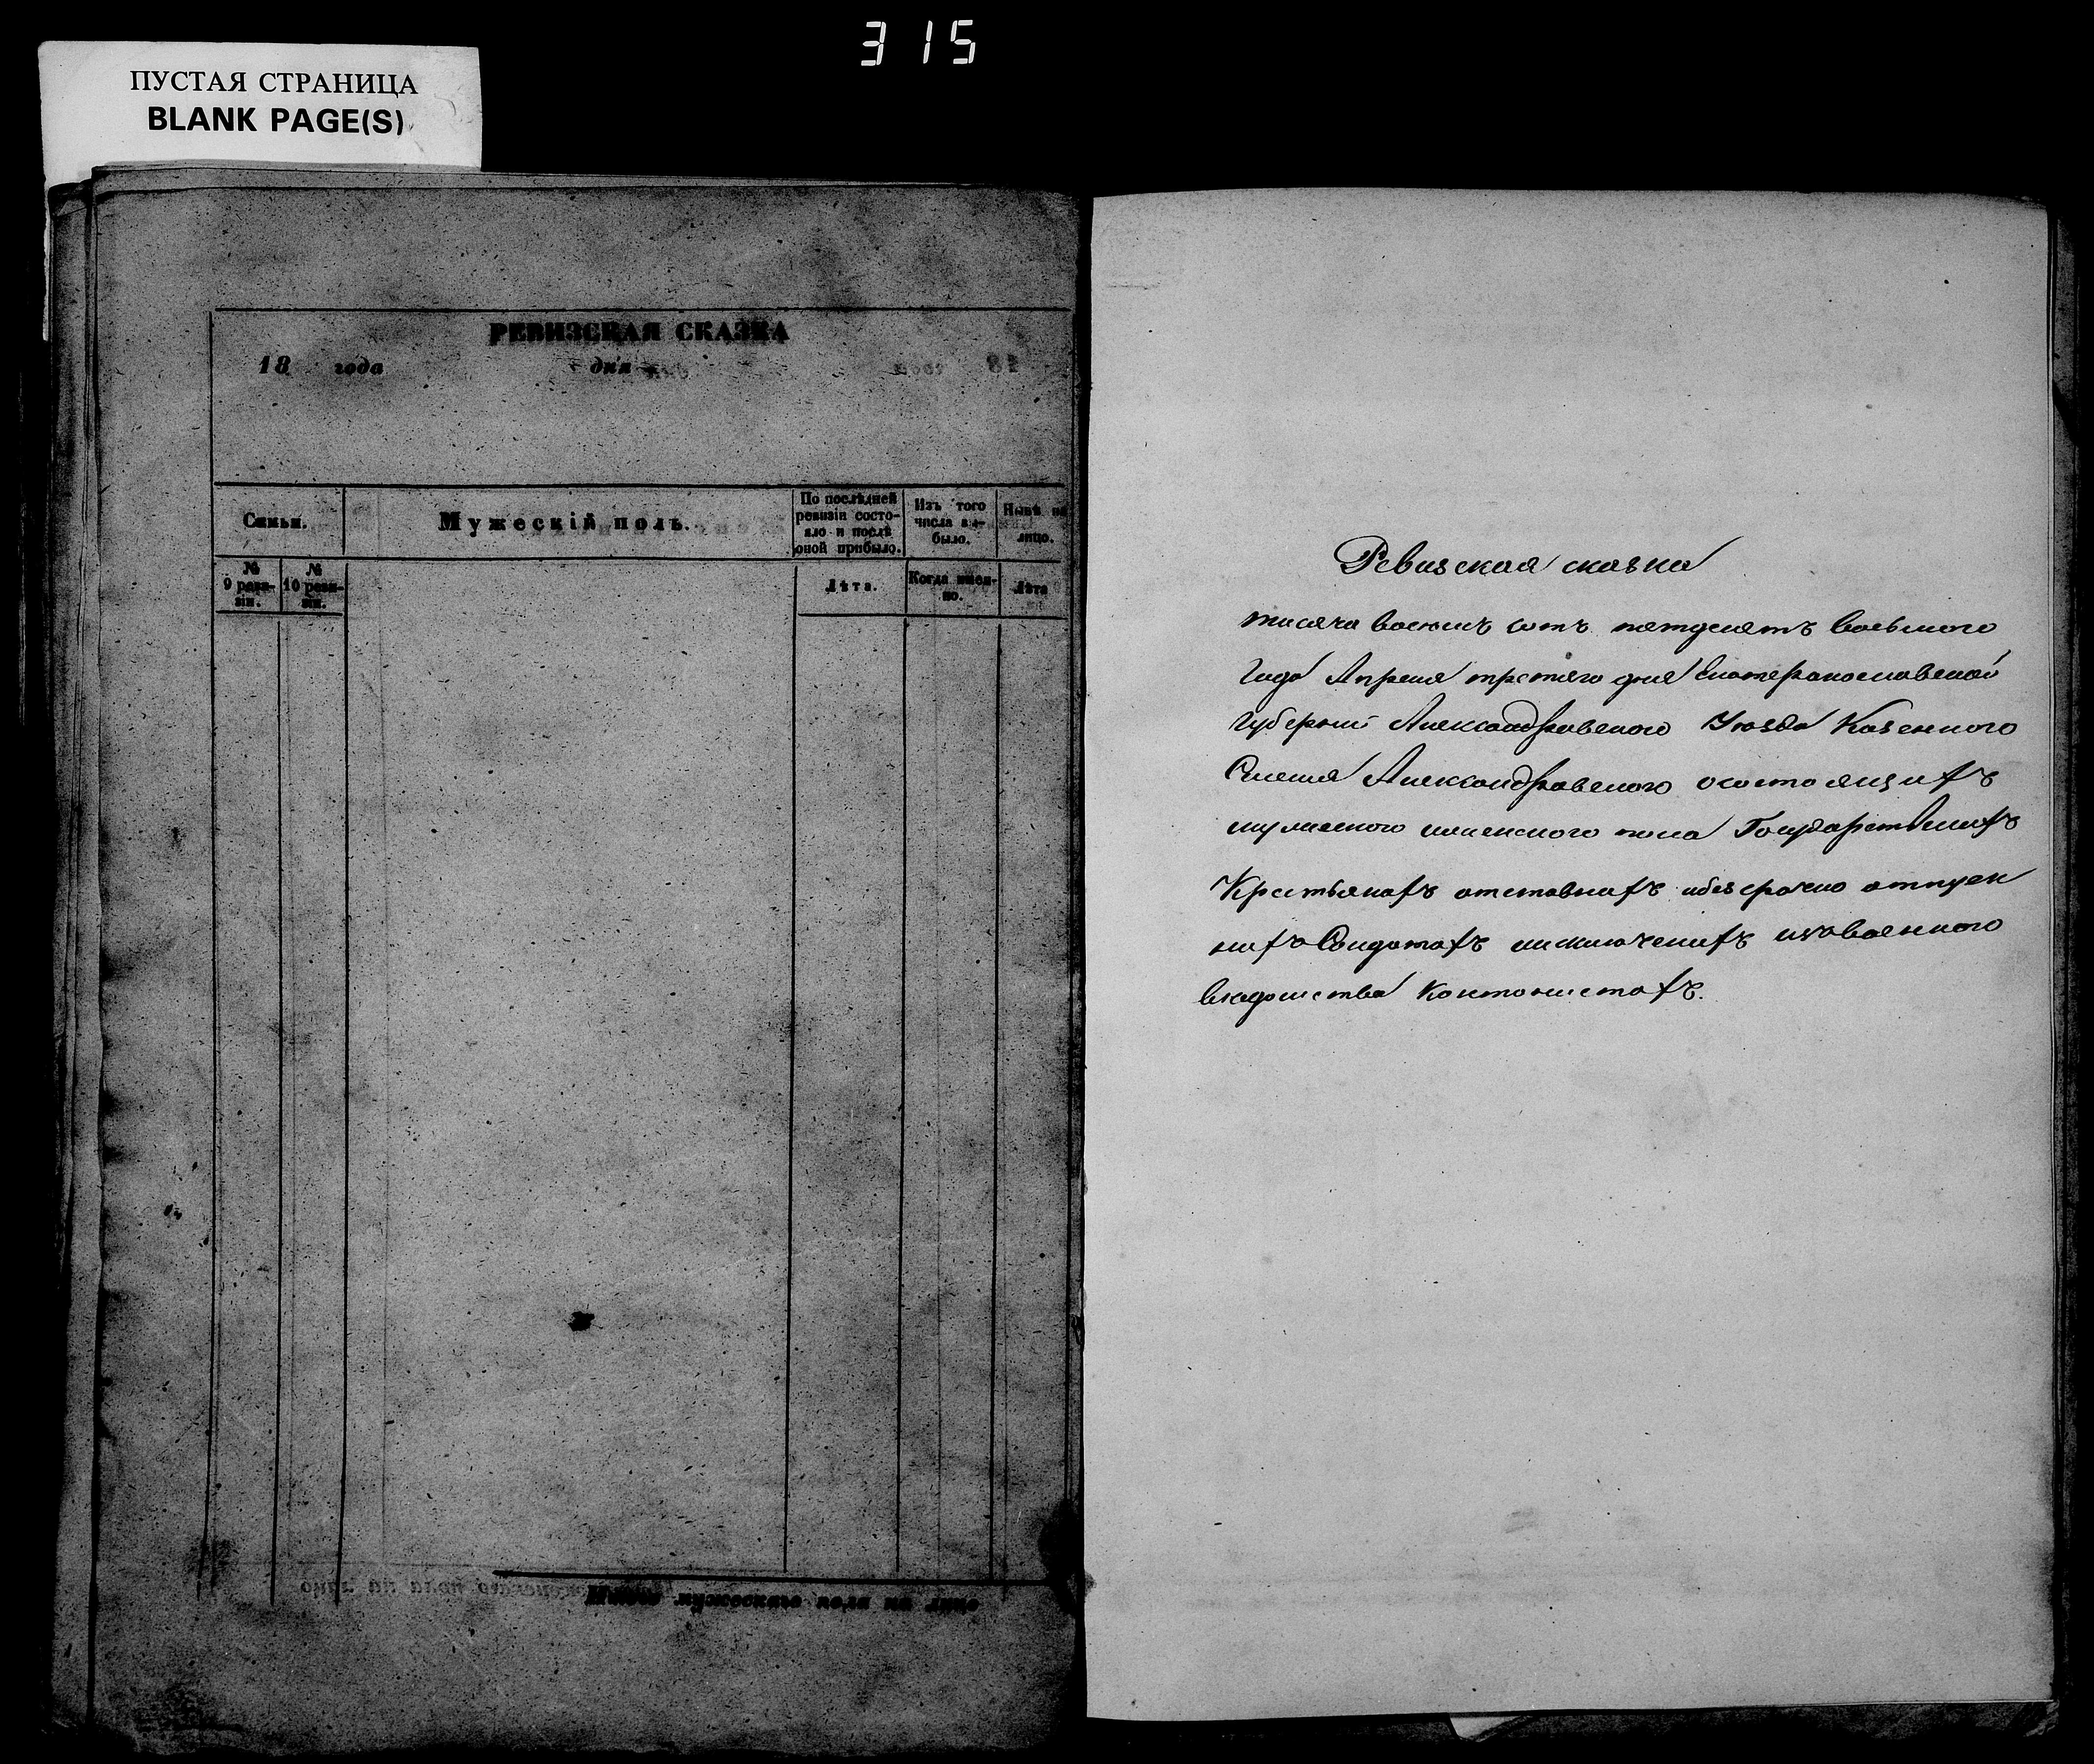 315
ПУСТАЯ СТРАНИЦА
BLANK PAGE(S)
РЕВИЗСКАЯ СКАЗКА
18 года дня
Семьи.
Мужескій полъ.
По послѣдней ревизіи состояло и послѣ оной прибыло.
Изъ того числа выбыло.
Нынѣ на лицо.
№ 9 ревизіи.
№ 10 ревизіи.
Лѣта.
Когда именно.
Лѣта
Итого мужескаго пола на лицо
Ревизская сказка
тисяча восемъ сотъ пятдесятъ восьмого
Года Апреля третяго дня Екатеринославской
Губерніи Александровского Уезда Казенного
Селенія Александровского осостоящихъ
мужеского иженского пола Государственихъ
Крестьянахъ отставнахъ ибезсрочно отпуск
нихъ Солдатахъ иисключенихъ изъвоенного
въедомства Кантонистахъ.